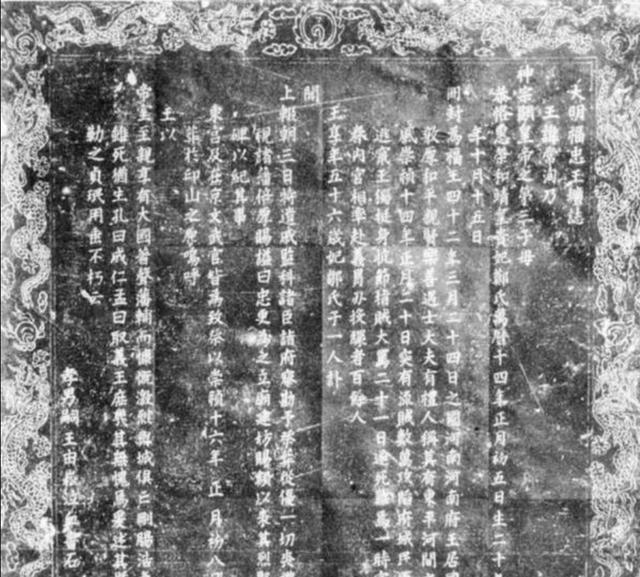 大明福忠王壙誌
王諱常洵乃
神宗顯皇帝之第三子母
恭恪惠榮和靖皇貴妃鄭氏萬曆十四年正月初五日生二十
年十月十五日
冊封為福王四十二年三月二十四日之國河南河南府王居
敦厚和平親賢樂善遇士大夫有禮人稱其有東平河間
崇禎十四年正月二十日突有流賊數萬攻陷府城
王獨挺身抗節指賊大罵二十一日
內宮相率赴義
王享年五十六歲妃鄒氏子一人訃
聞
上輟朝三日特遣戚監科諸臣諸府察勘予祭葬從優一切喪
視諸藩倍厚賜諡曰忠更為之立廟建坊賜額以表其烈
碑以紀其事
東宮及在京文武官皆為致祭以崇禎十六年正月初八
葬於邙山之原嗚呼
王以
王親享有大國
死猶生孔曰成仁孟曰取義王庶幾其無愧焉爰述其
勒之貞珉用垂不朽云
孝男嗣王由崧泣血
石